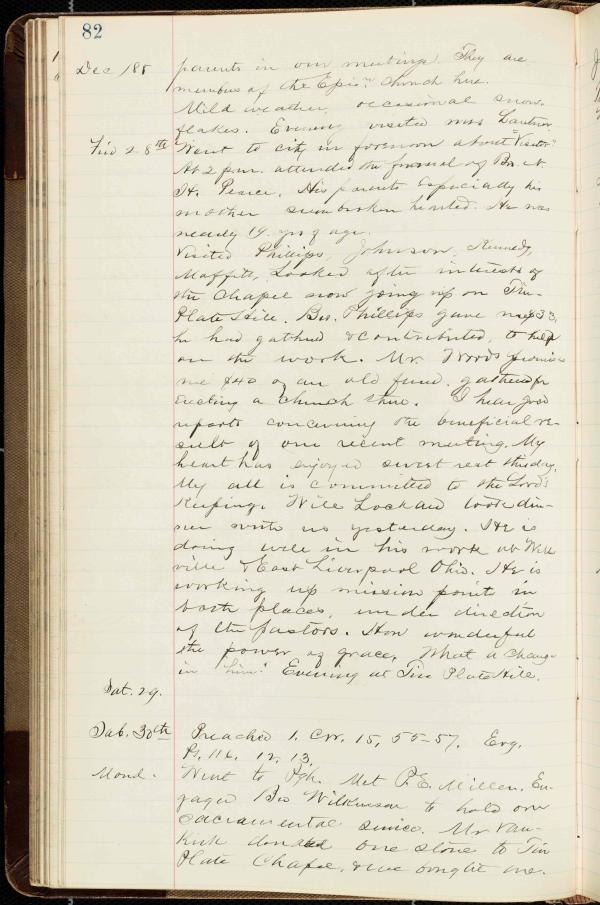 82
Dec /88 parents in our meeting. They are
members of the Epis. church here.
Mild weather, occasional snow-
flakes. Evening visited Miss
Frid 28th Went to city in forenoon about "Visitor"
At 2 p.m. attended the funeral of Bro.
H. Pearce. His parents especially his
mother seem broken hearted. He was
nearly 19 yrs of age.
Visited Phillips, Johnson, Kennedy,
Moffitt, Looked after interests of
the Chapel now going up on Tin-
Plate Hill. Bro. Phillips gave me $33
he had gathered & contributed, to help
on the work. Mr. Woods promises
me $40 of an old fund gathered for
erecting a church there. I hear good
reports concerning the beneficial re-
sult of our recent meeting. My
heart has enjoyed sweet rest this day.
My all is committed to the Lord's
Keeping. Will Lockard took din-
ner with us yesterday. He is
doing well in his work at Well-
ville & East Liverpool Ohio. He is
working up mission points in
both places, under direction
of the pastors. How wonderful
the power of grace, What a change
in him! Evening at Tin Plate Hill.
Sat. 29.
Sab. 30th Preached 1. Cor. 15, 55-57. Evg.
Ps. 116. 12, 13.
Mond. Went to Pgh. Met P.E. Miller. En-
gaged Bro Wilkinson to hold our
sacramental service. Mr Van-
Kirk donated one stove to Tin
Plate Chapel, & we bought one.